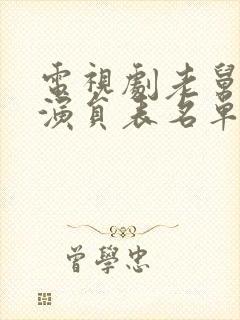 電視劇老舅
演員表名單
曾學忠